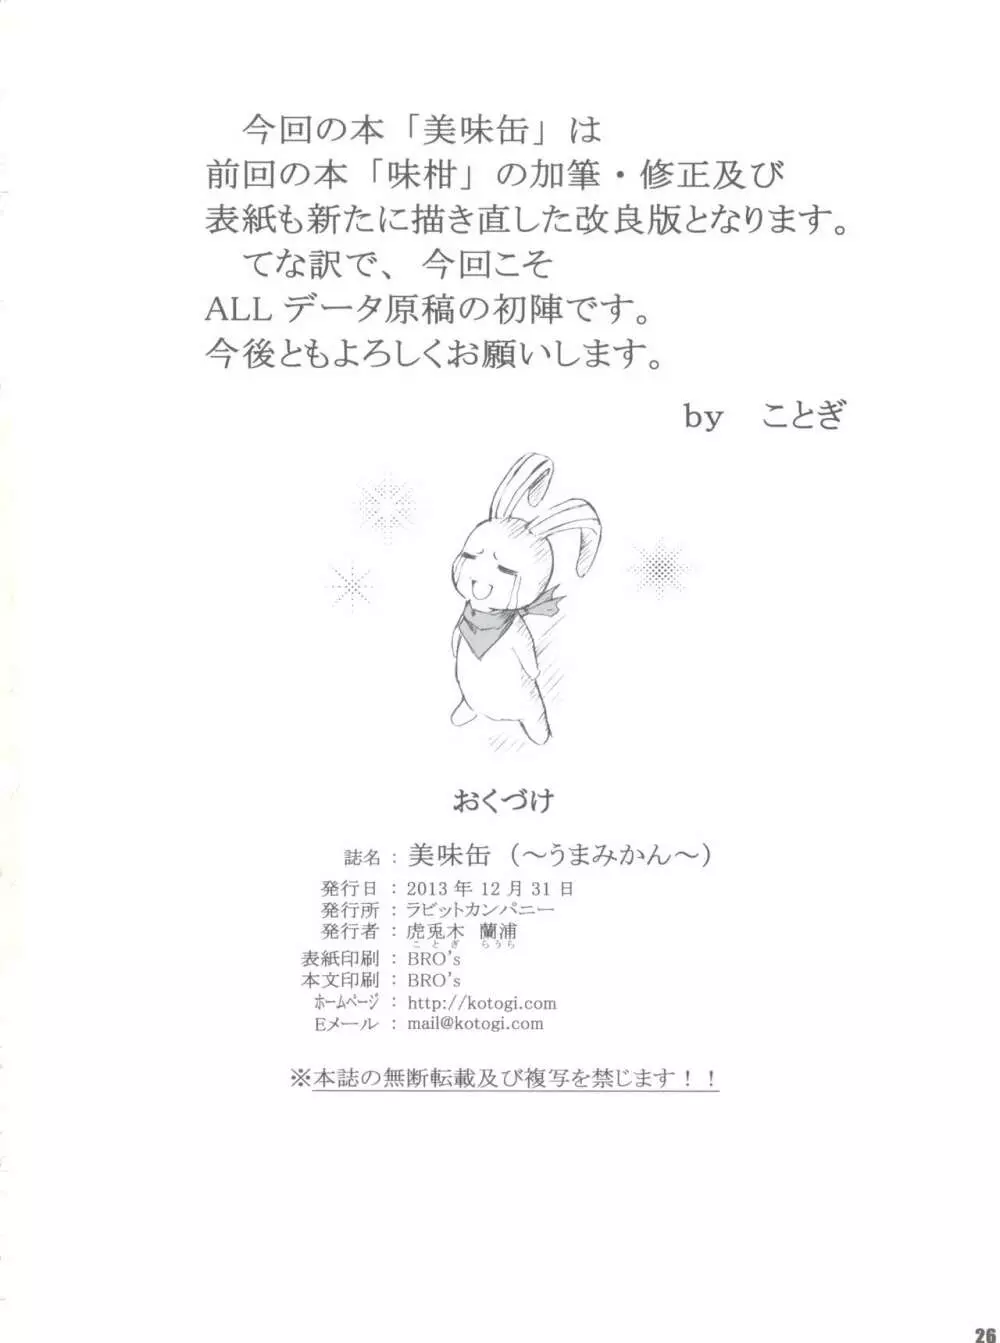 今回の本「美味缶」は
前回の本「味柑」の加筆・修正及び
表紙も新たに描き直した改良版となります。
てな訳で、今回こそ
ALL データ原稿の初陣です。
今後ともよろしくお願いします。
by　ことぎ
おくづけ
誌名 : 美味缶（～うまみかん～）
発行日 : 2013 年 12 月 31 日
発行所 : ラビットカンパニー
発行者 : 虎兎木　蘭浦
ことぎ　らうら
表紙印刷 : BRO's
本文印刷 : BRO's
ホームページ : http://kotogi.com
Eメール : mail@kotogi.com
※本誌の無断転載及び複写を禁じます！！
26